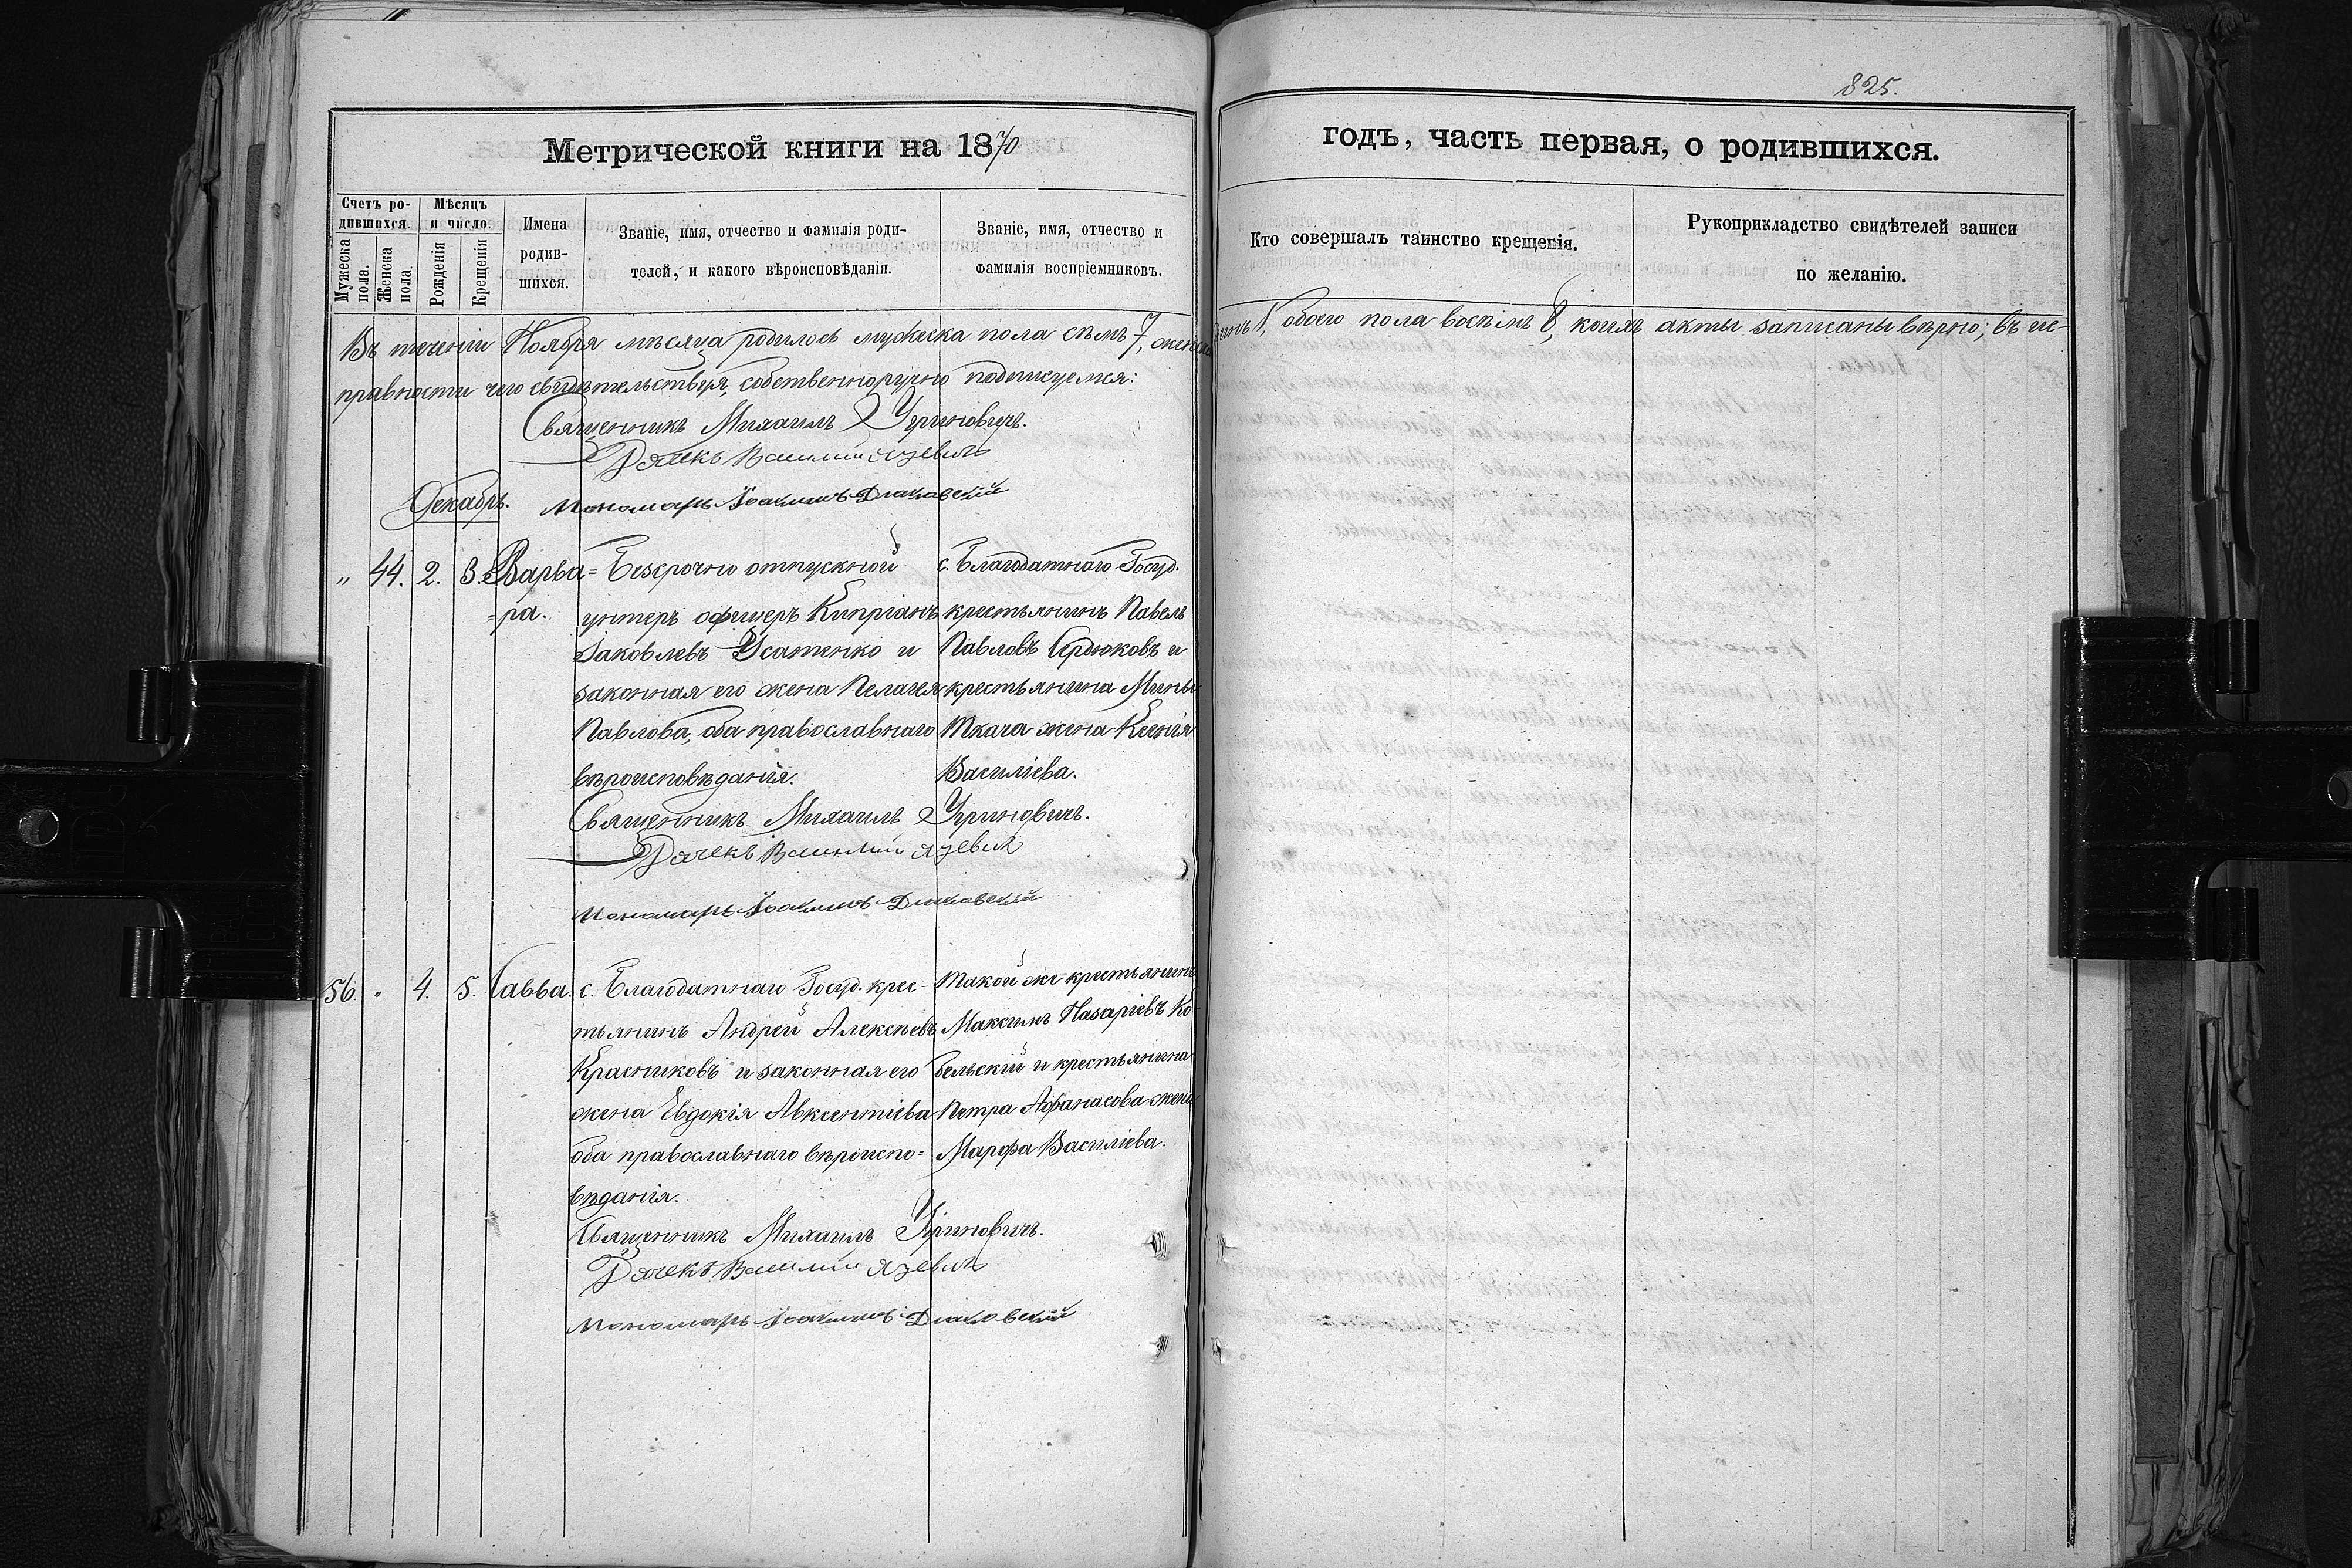 825.
Метрической книги на 1870
годъ, часть первая, о родившихся.
Счетъ ро-
дившихся.
Мѣсяцъ
и число.
Мужеска пола.
Женска пола.
Рожденія
Крещенія
Имена
родив-
шихся.
Званіе, имя, отчество и фамилія роди-
телей, и какого вѣроисповѣданія.
Званіе, имя, отчество и
фамилія воспріемниковъ.
Кто совершалъ таинство крещенія.
Рукоприкладство свидѣтелей записи
по желанію.
Въ теченіи Ноября мѣсяца родилось мужеска пола сѣмъ 7, женска одинъ 1, обоего пола восѣмъ 8, коихъ акты записаны вѣрно; въ ис-
правности чего свидѣтельствуя, собственноручно подписуемся:
Священникъ Михаилъ Угриновичъ.
Дячекъ Василий Язевичъ
Пономарь Іоакимъ Діаковскій
Декабрь.
" 44. 2. 3. Варва=
=ра.
Безсрочно отпускной
унтеръ офицеръ Кипріанъ
Іаковлевъ Усатенко и
законная его жена Пелагея
Павлова, оба православнаго
вѣроисповѣданія.
с. Благодатнаго Госуд.
крестьянинъ Павелъ
Павловъ Сердюковъ и
крестьянина Мины
Ткача жена Ксенія
Василіева.
Священникъ Михаилъ Угриновичъ.
Дячекъ Василий Язевичъ
Пономарь Іоакимъ Діаковскій
56. " 4. 5. Савва.
с. Благодатнаго Госуд. крес-
тьянинъ Андрей Алексѣевъ
Красниковъ и законная его
жена Евдокія Авксентіева
оба православнаго вѣроиспо=
вѣданія.
Такой же крестьянинъ
Максимъ Назаріевъ Ко-
бельскій и крестьянина
Петра Афанасова жена
Марфа Василіева.
Священникъ Михаилъ Угриновичъ.
Дячекъ Василий Язевичъ
Пономарь Іоакимъ Діаковскій